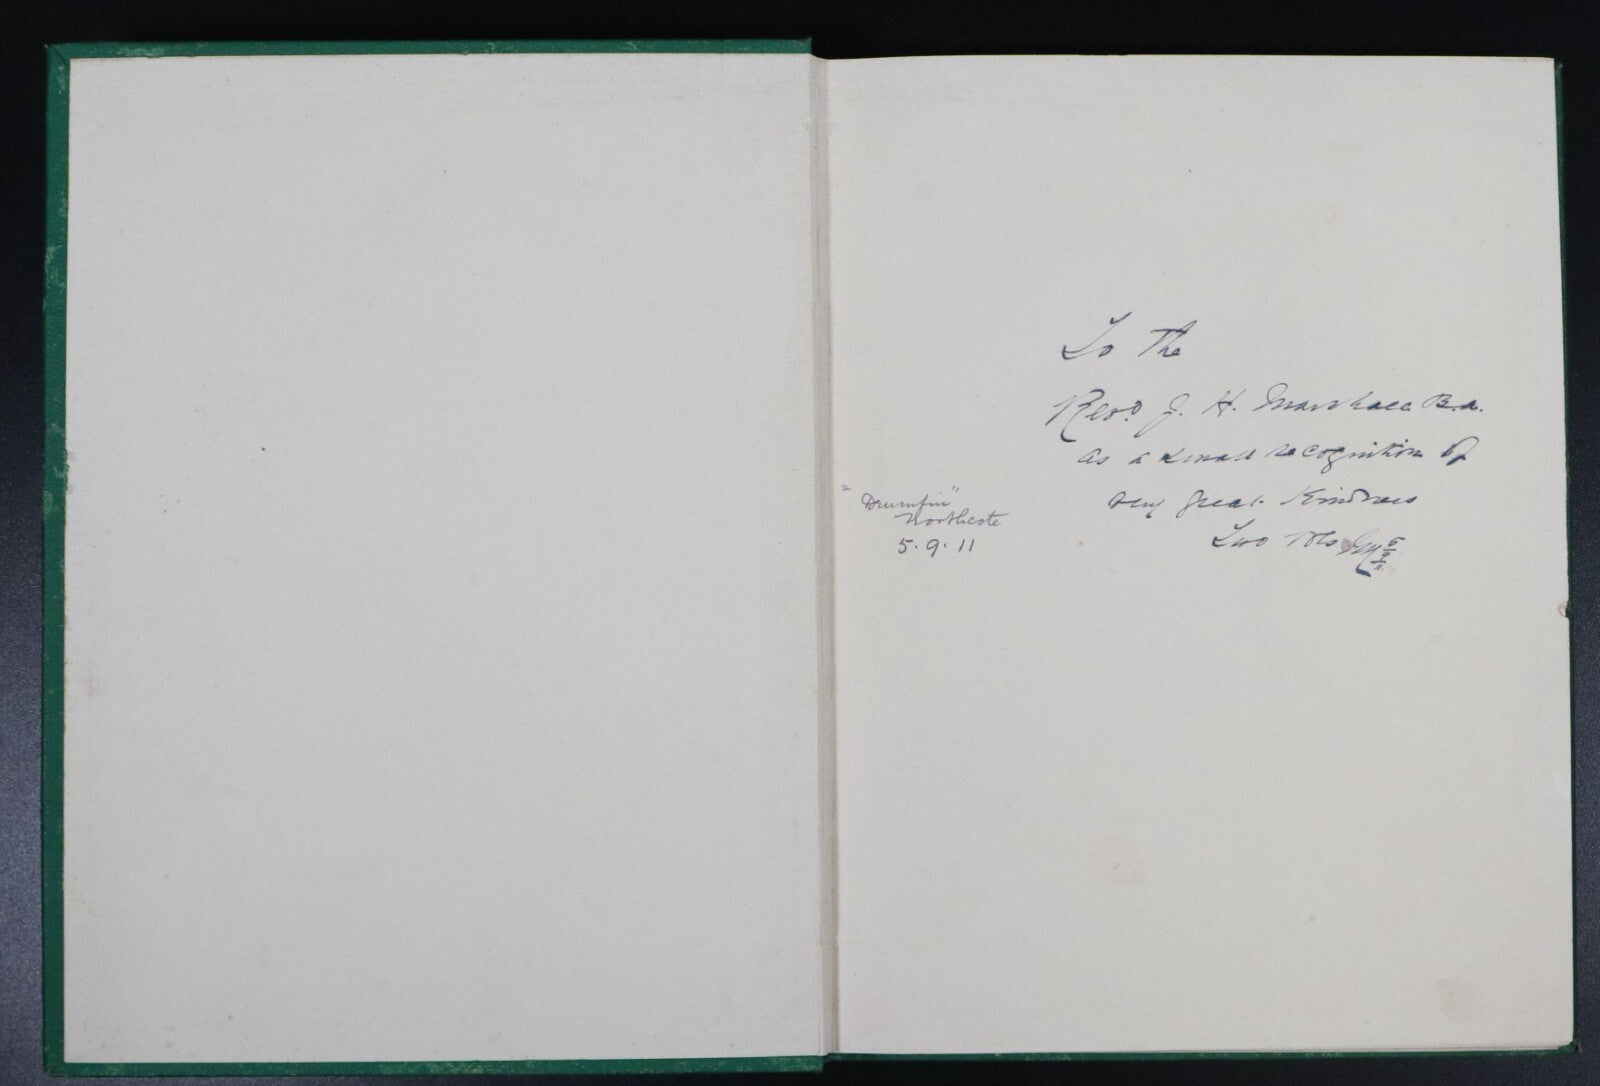 To the
Revd. J. H. Marshall B.A.
as a small recognition of
very great kindness
Two Vols
5/9/11
"Drumfin"
Northcote
5.9.11